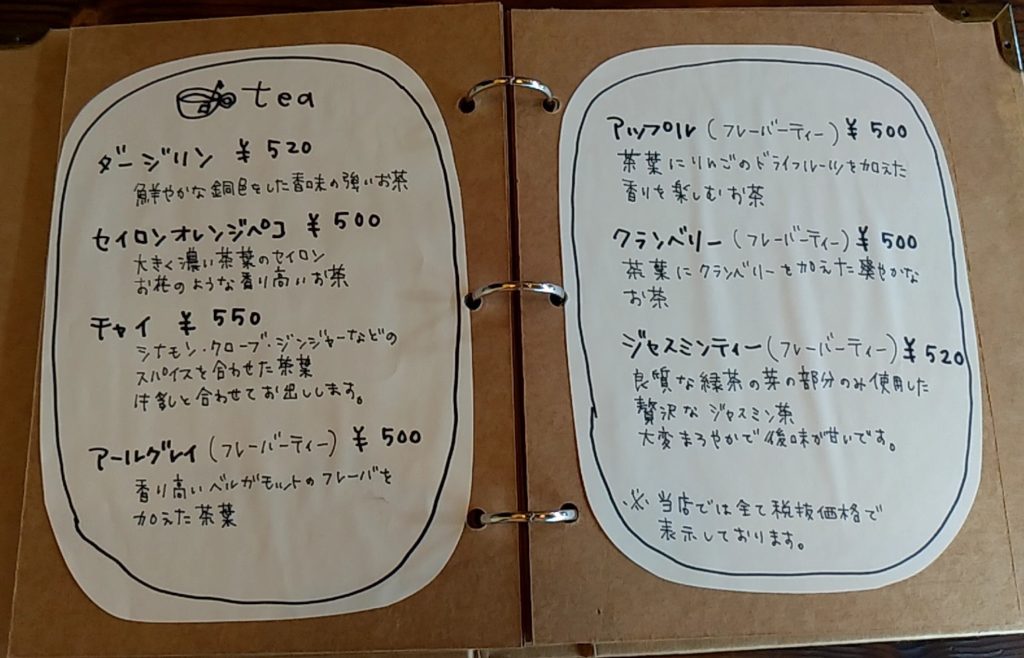 tea
ダージリン ¥ 520
鮮やかな銅色をした香味の強いお茶
セイロンオレンジペコ ¥ 500
大きく濃い茶葉のセイロン
お花のような香り高いお茶
チャイ ¥ 550
シナモン・クローブ・ジンジャーなどの
スパイスを合わせた茶葉
牛乳と合わせてお出しします。
アールグレイ(フレーバーティー) ¥ 500
香り高いベルガモットのフレーバを
加えた茶葉
アップル(フレーバーティー) ¥ 500
茶葉にりんごのドライフルーツを加えた
香りを楽しむお茶
クランベリー(フレーバーティー) ¥ 500
茶葉にクランベリーを加えた爽やかな
お茶
ジャスミンティー(フレーバーティー) ¥ 520
良質な緑茶の芽の部分のみ使用した
贅沢なジャスミン茶
大変まろやかで後味が甘いです。
※ 当店では全て税抜価格で
表示しております。